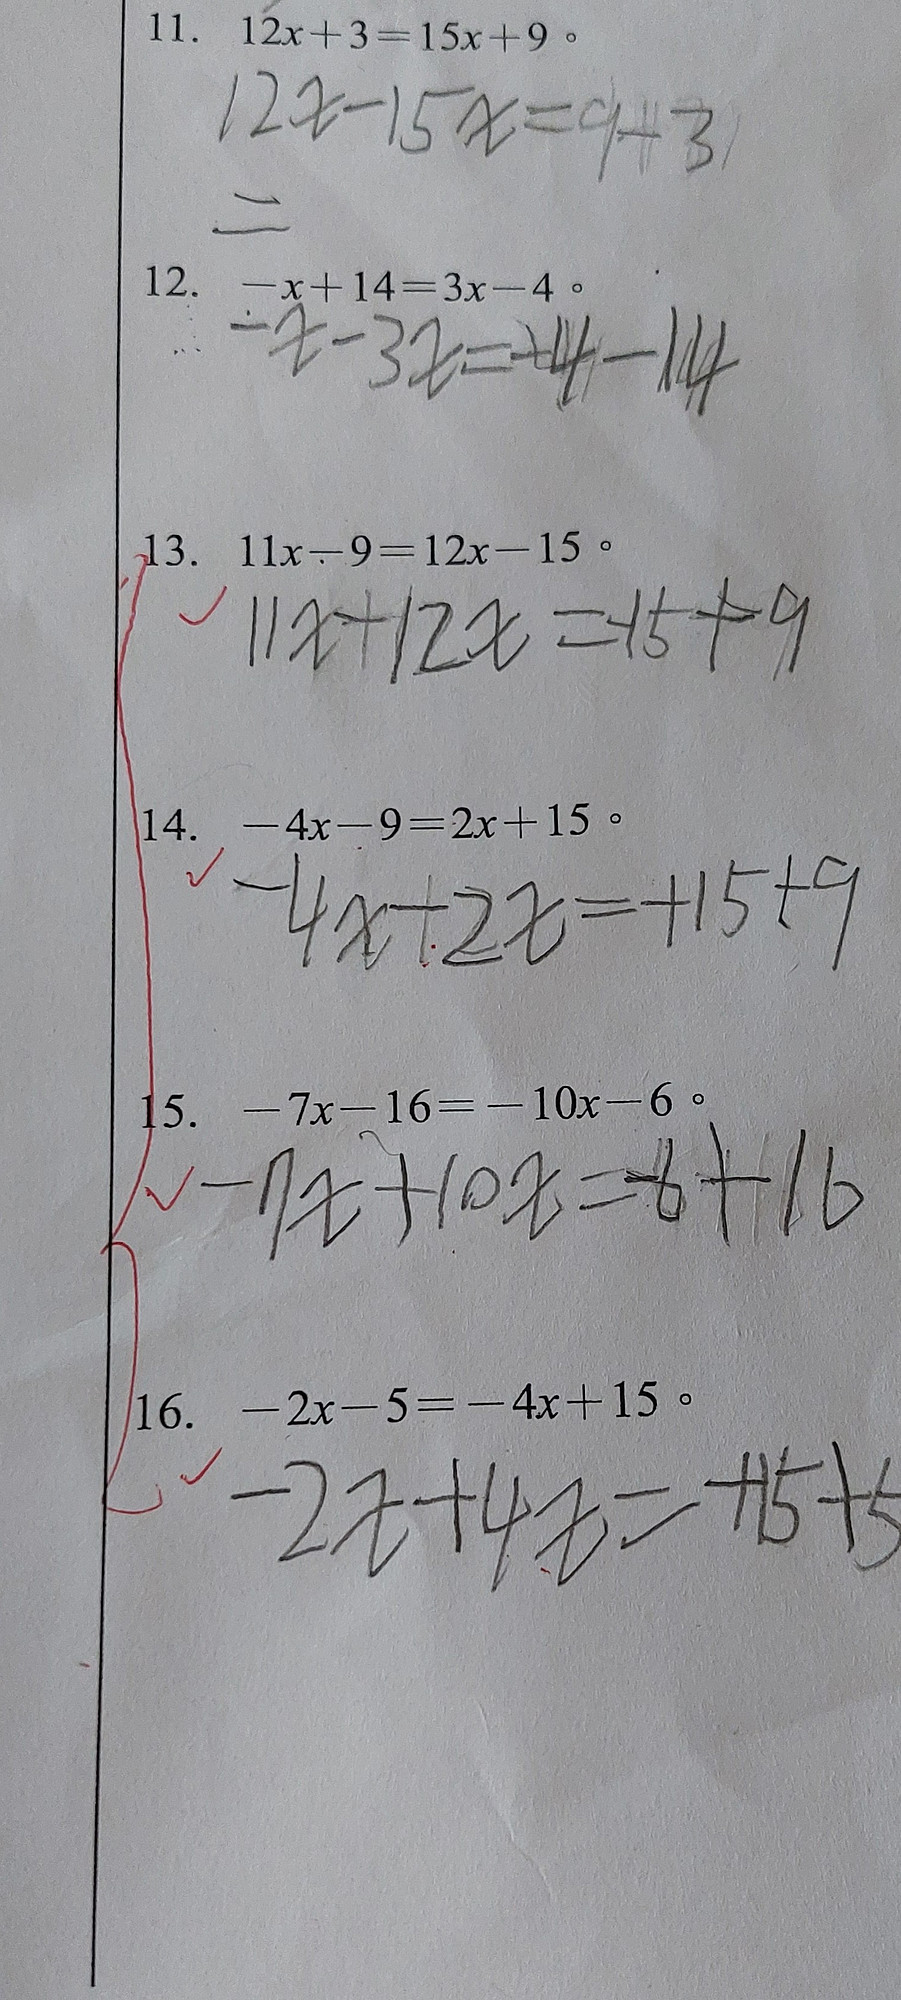 11. 12x+3=15x+9。
12x-15x=9+3
=
12. -x+14=3x-4。
-x-3x=-4-14
13. 11x-9=12x-15。
11x+12x=-15+9
14. -4x-9=2x+15。
-4x+2x=+15+9
15. -7x-16=-10x-6。
-7x+10x=-6+16
16. -2x-5=-4x+15。
-2x+4x=+15+5